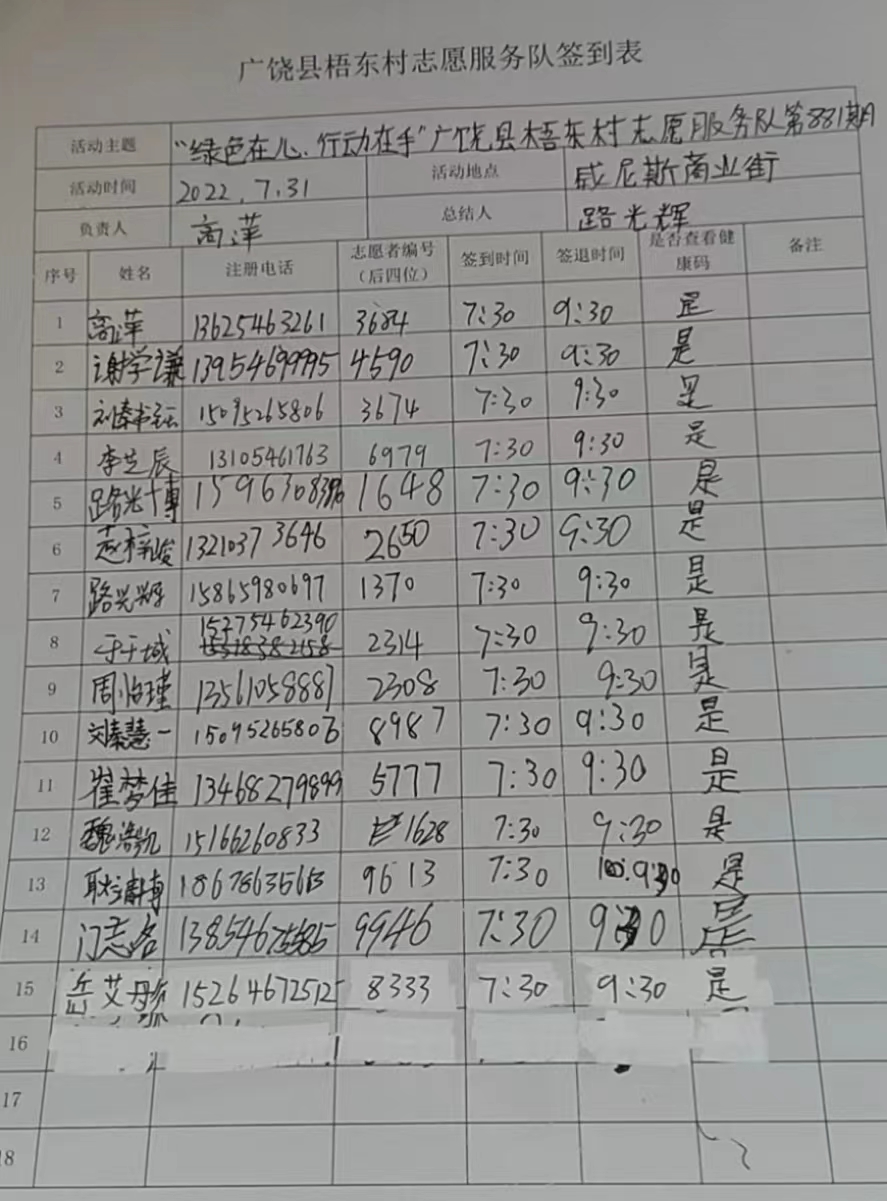 广饶县梧东村志愿服务队签到表
活动主题 “绿色在心、行动在手”广饶县梧东村志愿服务队第881期
活动时间 2022.7.31 活动地点 威尼斯商业街
负责人 高萍 总结人 路光辉
序号 姓名 注册电话 志愿者编号（后四位） 签到时间 签退时间 是否查看健康码 备注
1 高萍 13625463261 3684 7:30 9:30 是
2 谢学谦 13954699995 4590 7:30 9:30 是
3 15095265806 3674 7:30 9:30 是
4 李芝辰 13105461763 6979 7:30 9:30 是
5 路光博 1648 7:30 9:30 是
6 13210373646 2650 7:30 9:30 是
7 路光辉 15865980697 1370 7:30 9:30 是
8 于子城 15275462390 2314 7:30 9:30 是
9 周怡瑾 13561058887 2308 7:30 9:30 是
10 刘秦慧一 15095265806 8987 7:30 9:30 是
11 崔梦佳 13468279899 5777 7:30 9:30 是
12 魏浩凯 15166260833 1628 7:30 9:30 是
13 18678635613 9613 7:30 9:30 是
14 门志洺 9946 7:30 9:30 是
15 15264672512 8333 7:30 9:30 是
16
17
18